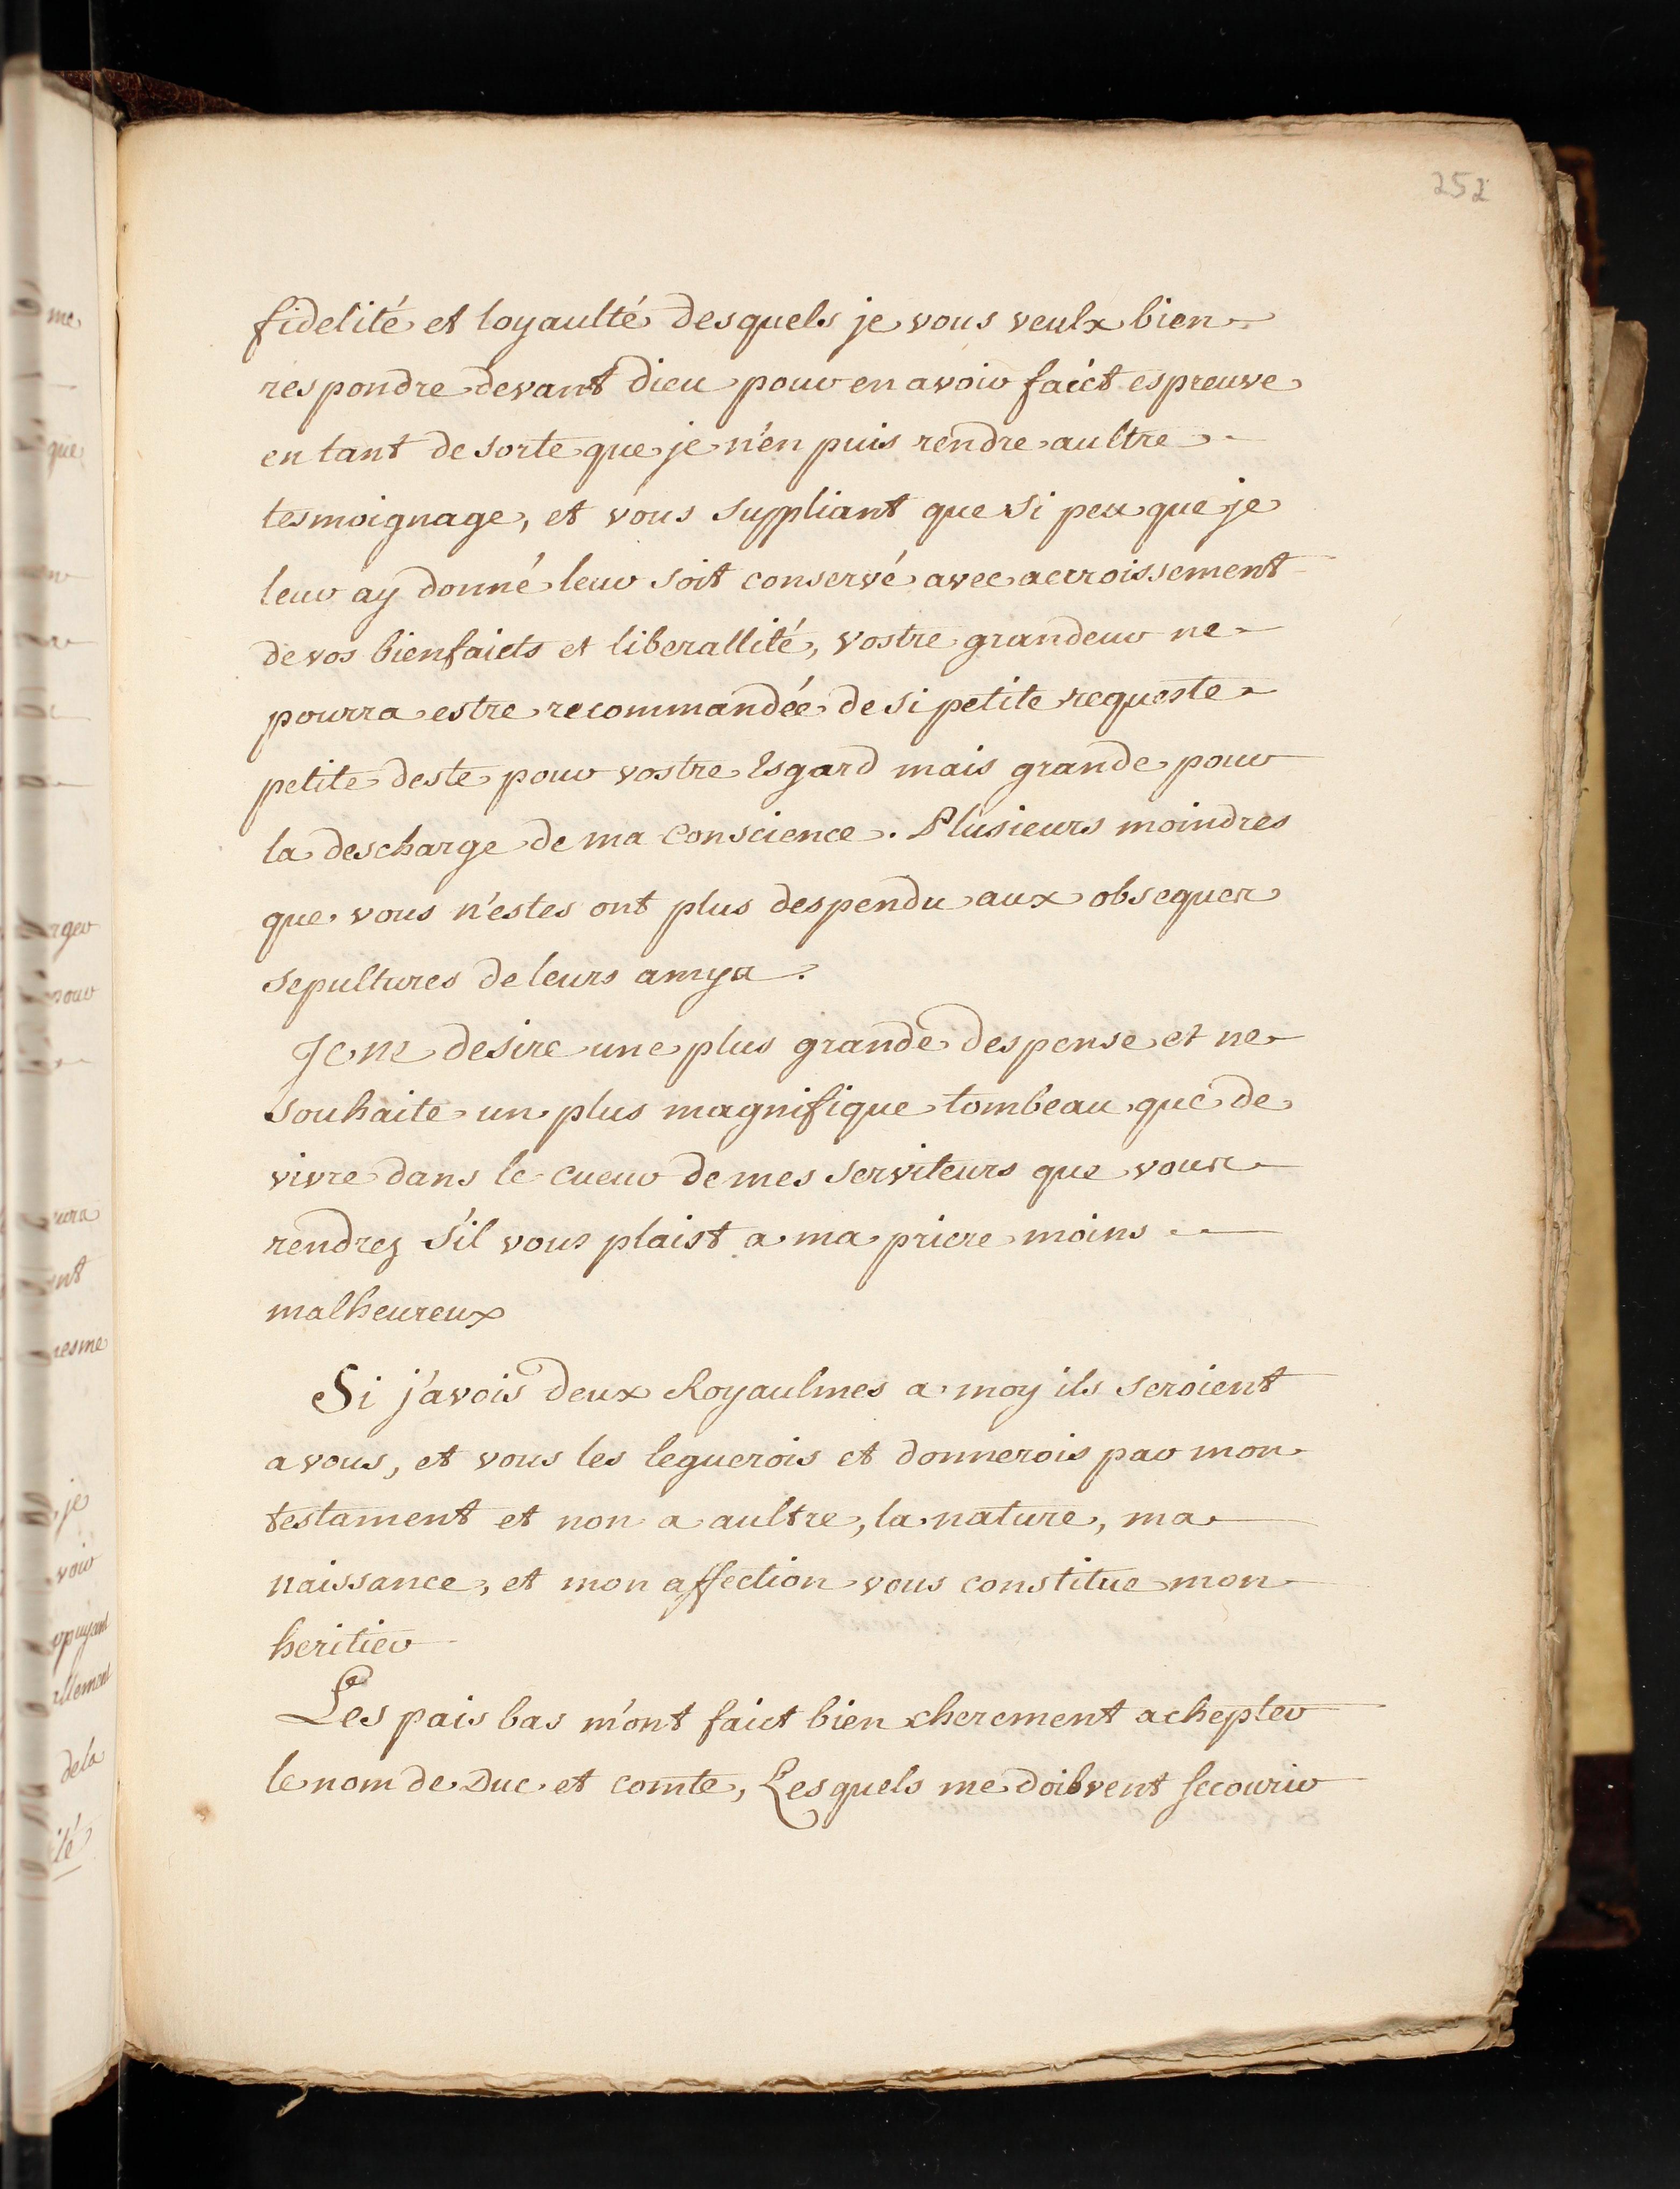 252
fidelité et loyaulté desquels je vous veulx bien
respondre devant dieu pour en avoir faict espreuve
en tant de sorte que je n'en puis rendre aultre
tesmoignage, et vous suppliant que si peu que je
leur ay donné leur soit conservé avec accroissement
de vos bienfaicts et liberallité, vostre grandeur ne
pourra estre recommandée de si petite requeste
petite deste pour vostre Esgard mais grande pour
la descharge de ma conscience. Plusieurs moindres
que vous n'estes ont plus despendu aux obseques
sepultures de leurs amys.
Je ne desire une plus grande despense et ne
souhaite un plus magnifique tombeau que de
vivre dans le cueur de mes serviteurs que vous
rendrez s'il vous plaist a ma priere moins
malheureux
Si j'avois deux Royaulmes a moy ils seroient
a vous, et vous les leguerois et donnerois par mon
testament et non a aultre, la nature, ma
naissance, et mon affection vous constitue mon
heritier
Les pais bas m'ont faict bien cherement achepter
le nom de Duc et comte, Lesquels me doibvent secourir
me
que
rger
pour
ura
ant
mesme
je
voir
puyant
allement
de la
ité